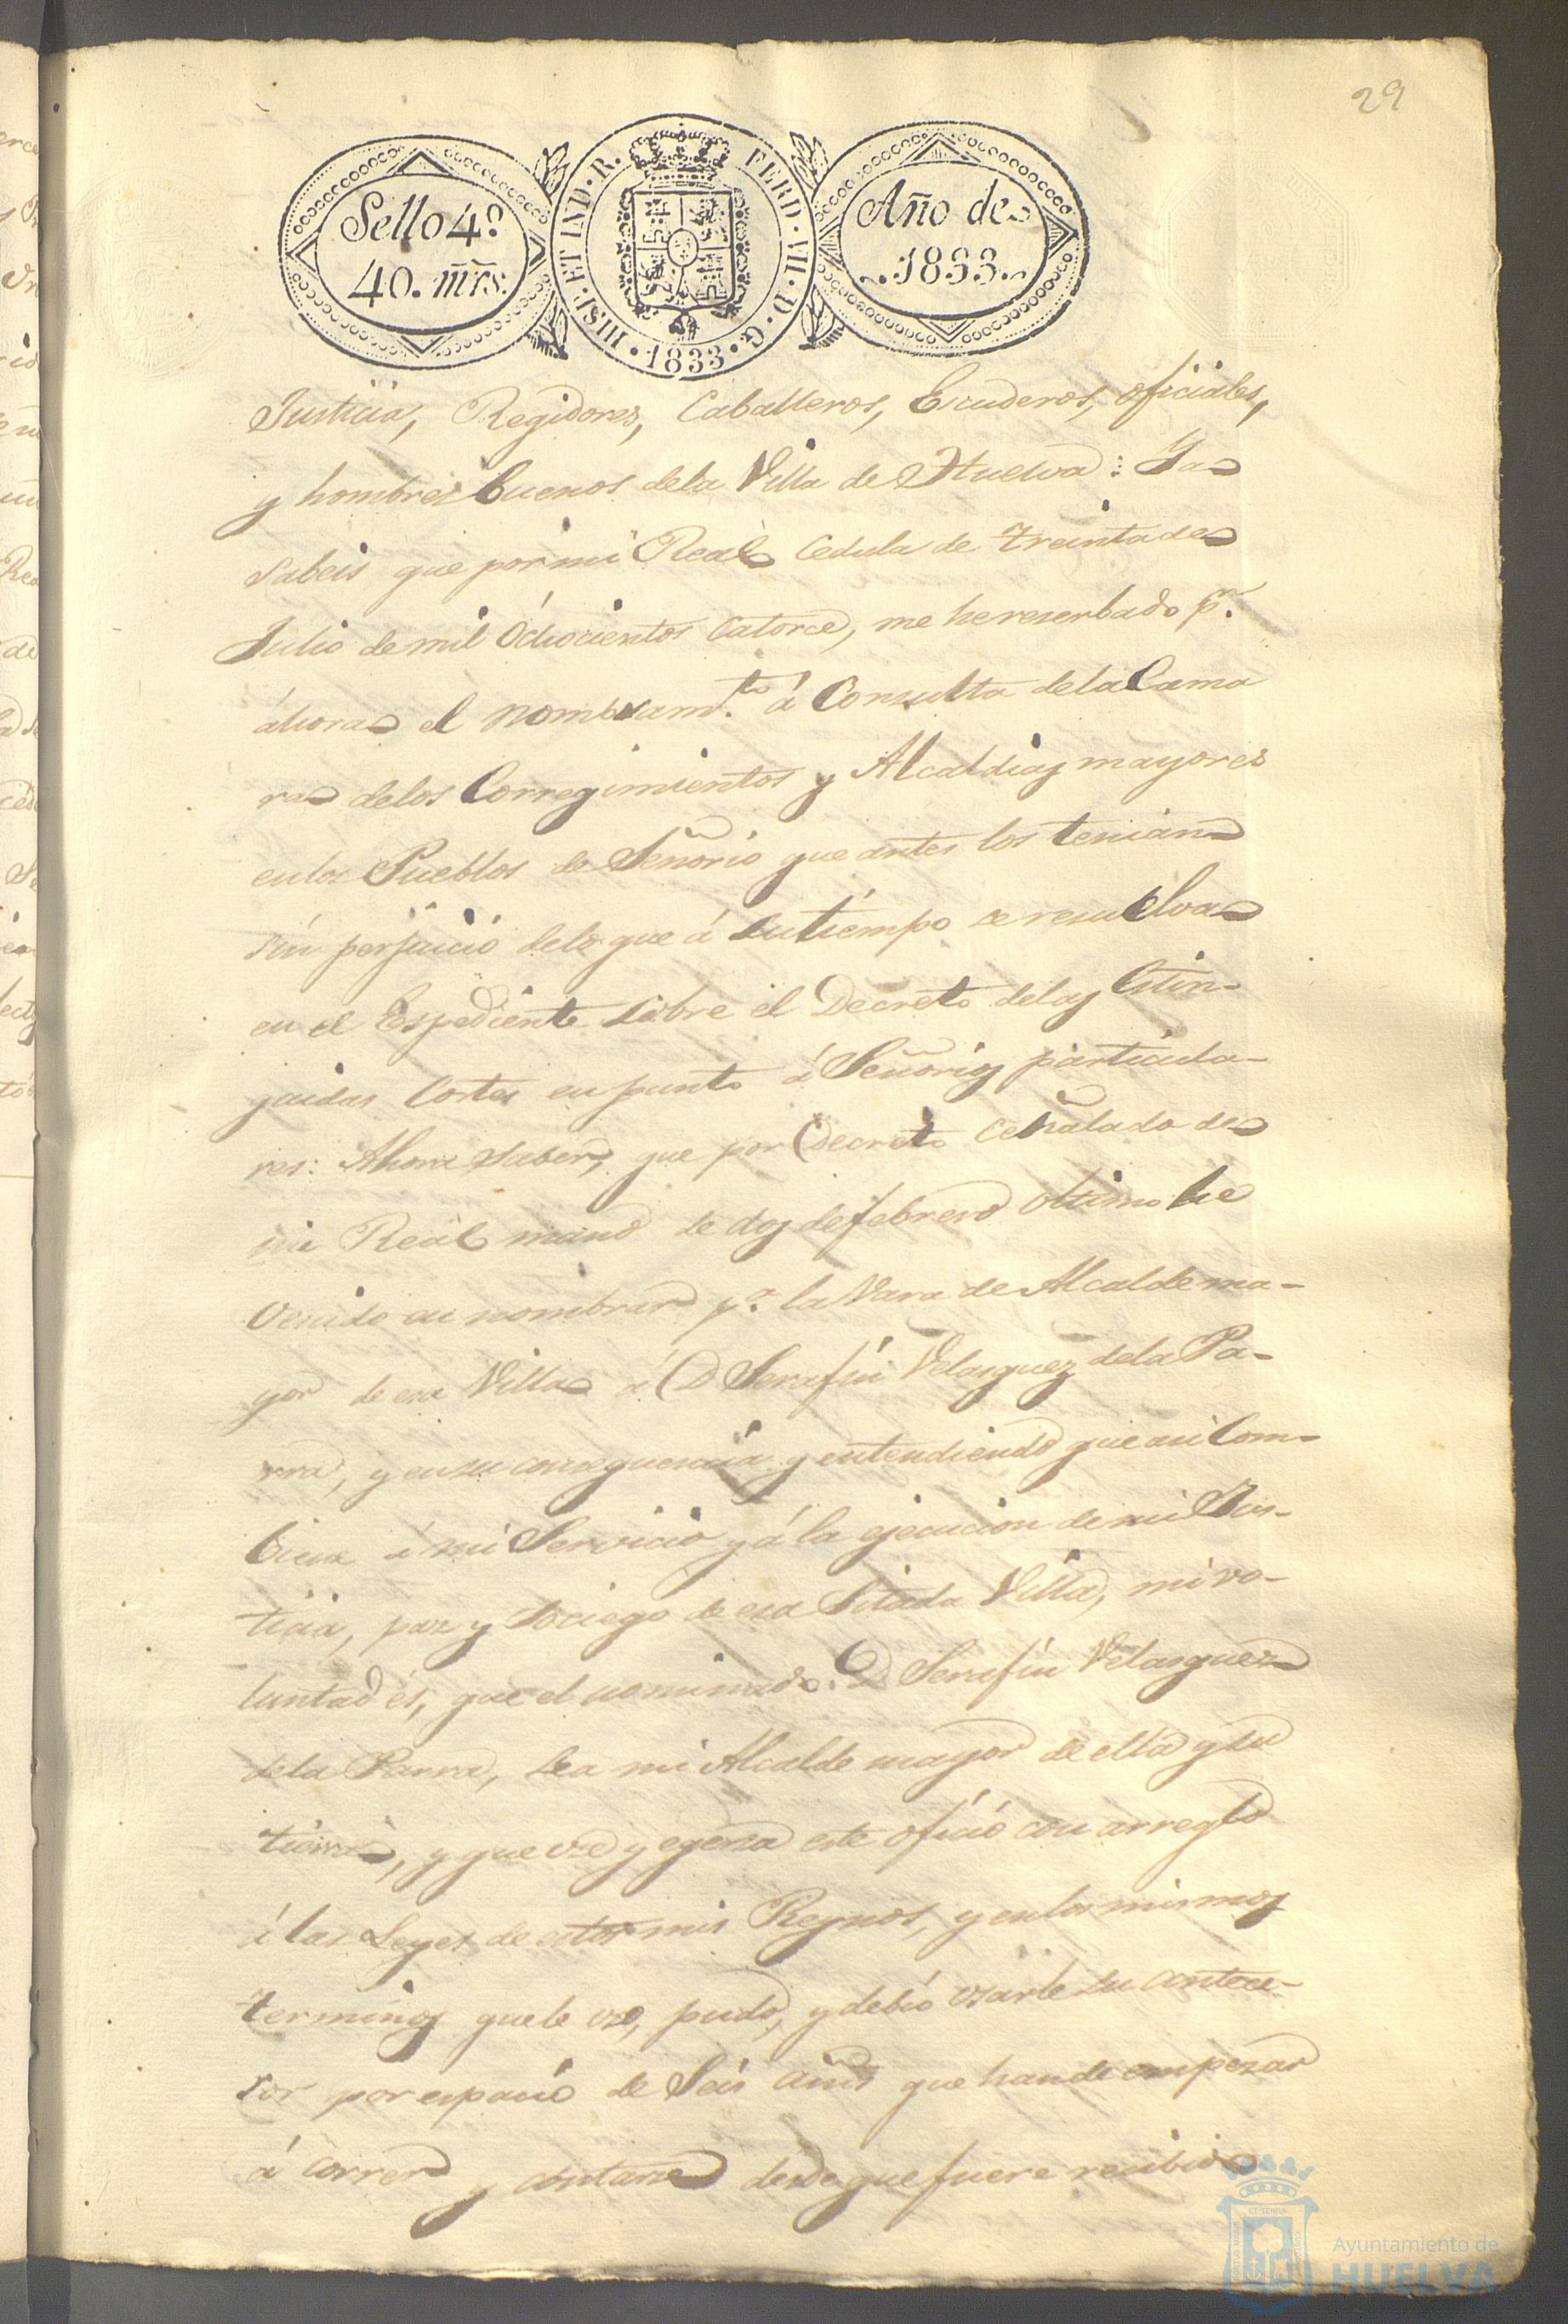 29
Sello 4º
40. mrs:
HISP. ET IND. R. FERD. VII. D. G. 1833
Año de
1833
Justicia, Regidores, Caballeros, Escuderos, oficiales,
y hombres buenos dela Villa de Huelva: Ya
sabeis que por mi Real Cedula de treinta de
Julio de mil ochocientos Catorce, me he reserbado pr.
áhora el nombram.to á Consulta dela Cama
ra delos Corregimientos y Alcaldias mayores
enlos Pueblos de Señorio que antes los tenian
sin perjuicio delo que á su tiempo se resuelva
en el Espediente sobre el Decreto delas Estin-
guidas Cortes en punto á Señorios particula-
res: Ahora sabed, que por Decreto Señalado de
mi Real mano de dos de febrero ultimo he
venido en nombrar pa. la Vara de Alcalde ma-
yor de esa Villa á D Serafin Velasquez dela Pa-
rra, y en su consequencia y entendiendo que asi Com-
biene á mi Servicio y á la ejecucion de mi Jus-
ticia, paz y sociego de esa Sitada Villa, mi vo-
luntad és, que el nominado D Serafin Velasquez
dela Parra, sea mi Alcalde mayor de ella y su
tierra, y que use y egersa este oficio con arreglo
á las Leyes de estos mis Reynos, y enlos mismos
terminos que le uso, pudo, y debió usarle su antece-
sor por espacio de Seis años que han de empezar
á correr y contarse desde que fuere recibido
Ayuntamiento de
HUELVA